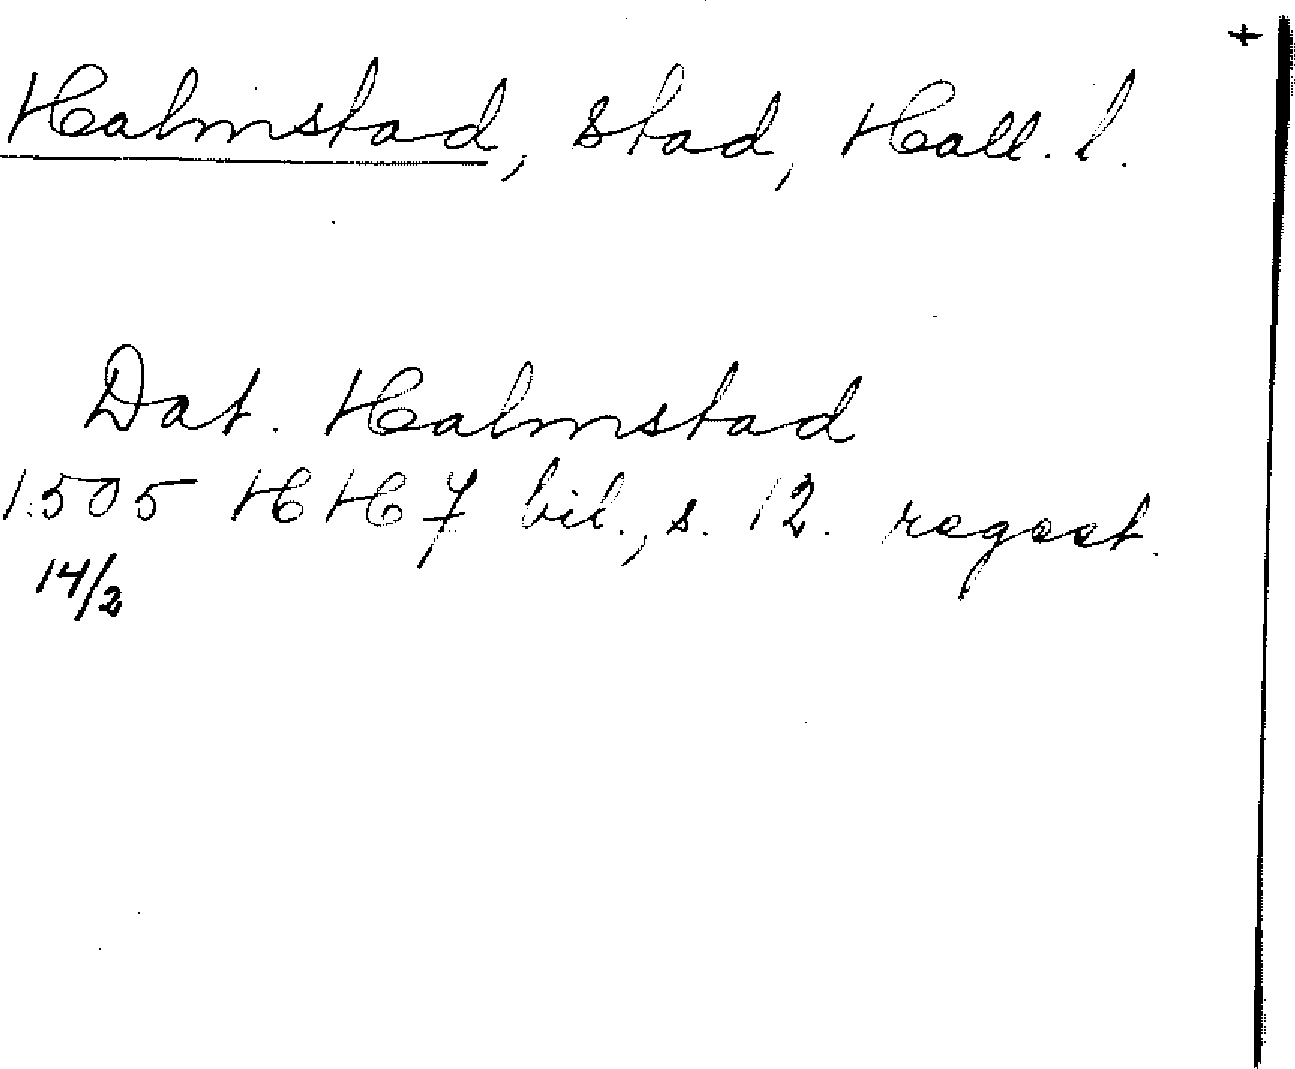 +
Halmstad, stad, Hall. l.
Dat. Halmstad
1505 HH 7 bil., s. 12. regest.
14/2